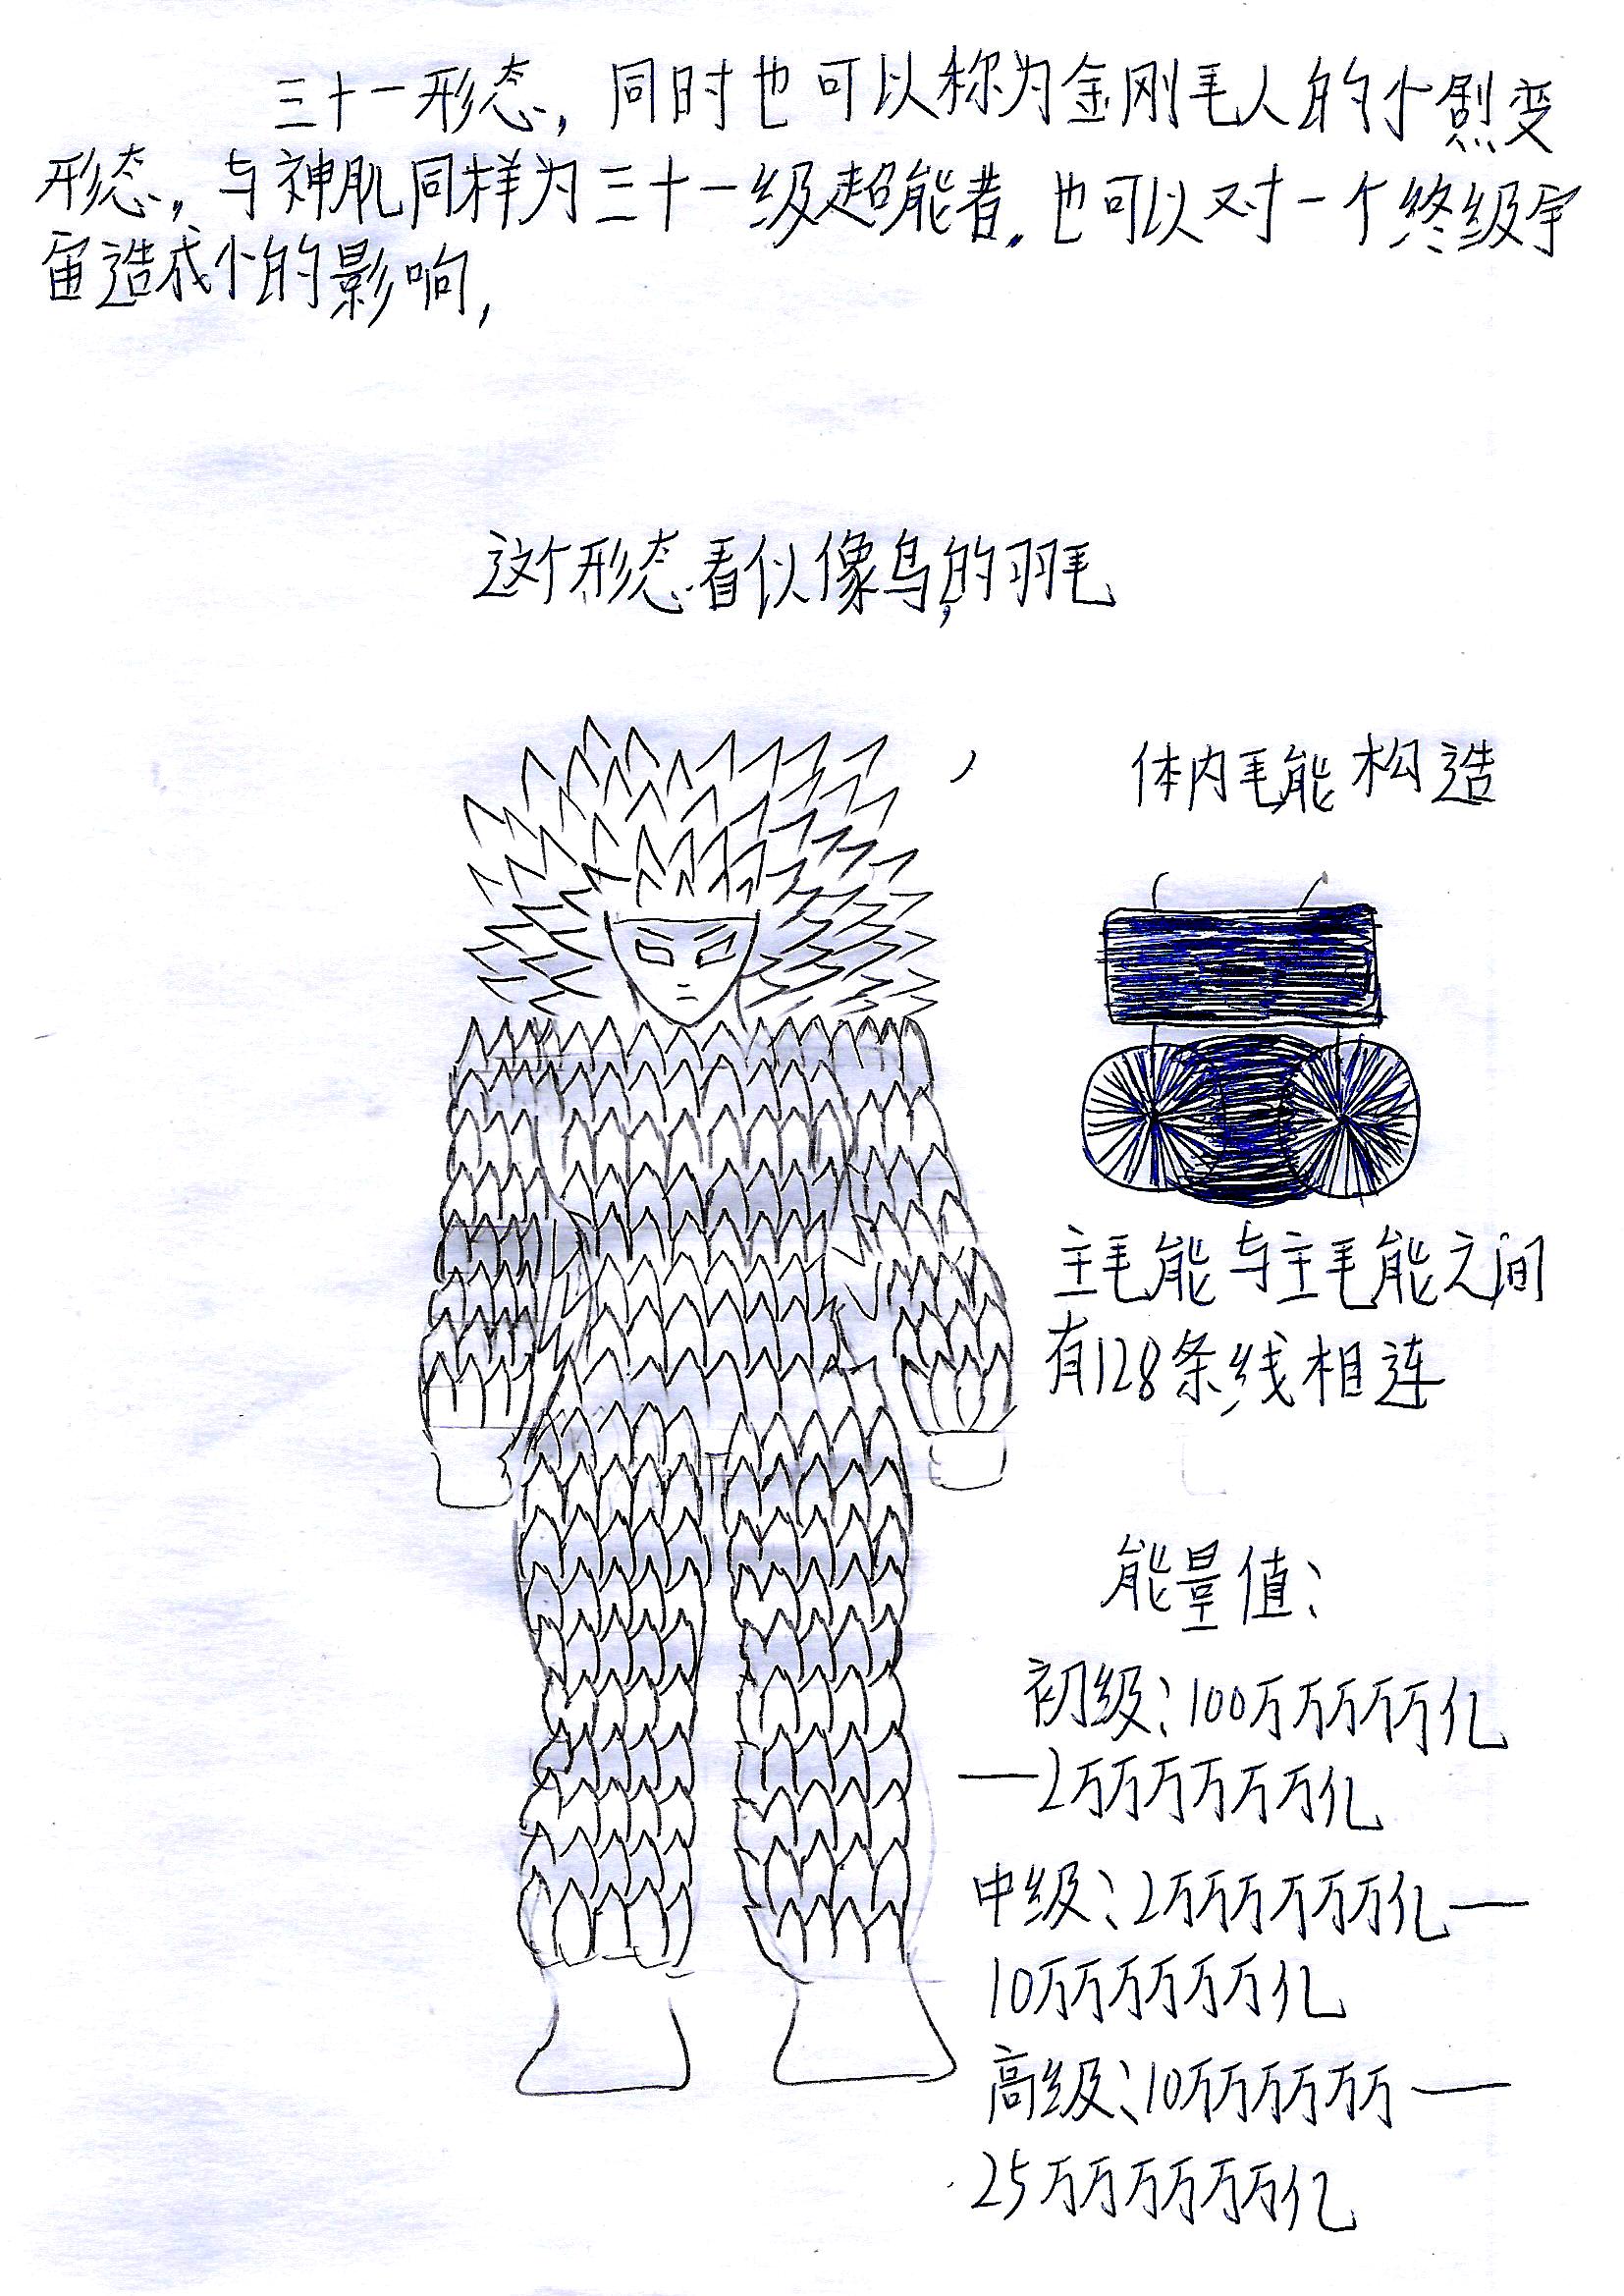 三十一形态，同时也可以称为金刚毛人的小剧变
形态，与神肌同样为三十一级超能者，也可以对一个终级宇
宙造成小的影响，
这个形态看似像鸟的羽毛
体内毛能构造
主毛能与主毛能之间
有128条线相连
能量值：
初级：100万万万万万亿
—2万万万万万万亿
中级：2万万万万万万亿—
10万万万万万万亿
高级：10万万万万万万—
25万万万万万万亿